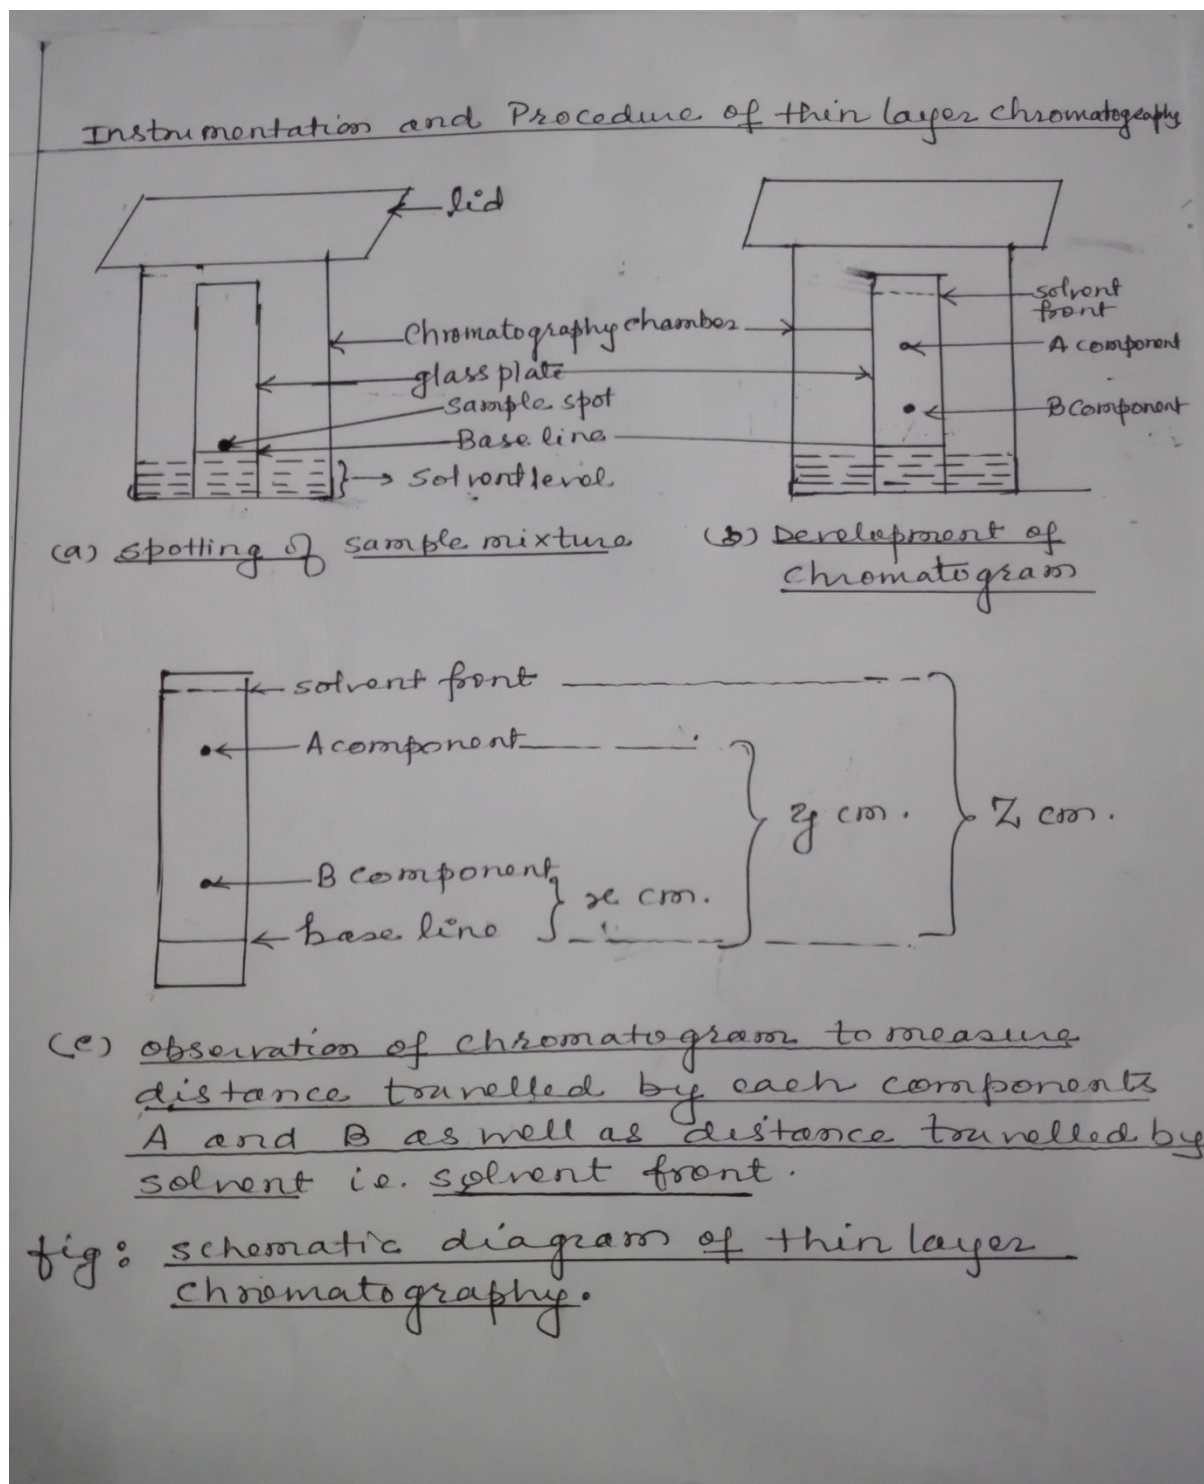 Instrumentation and Procedure of thin layer chromatography
lid
solvent
front
Chromatography chamber
A component
glass plate
Sample spot
B component
Base line
Solvent level
(a) spotting of sample mixture
(b) Development of
chromatogram
solvent front
A component
y cm.
Z cm.
B component
x cm.
base line
(c) observation of chromatogram to measure
distance travelled by each components
A and B as well as distance travelled by
solvent i.e. solvent front.
fig: schematic diagram of thin layer
chromatography.